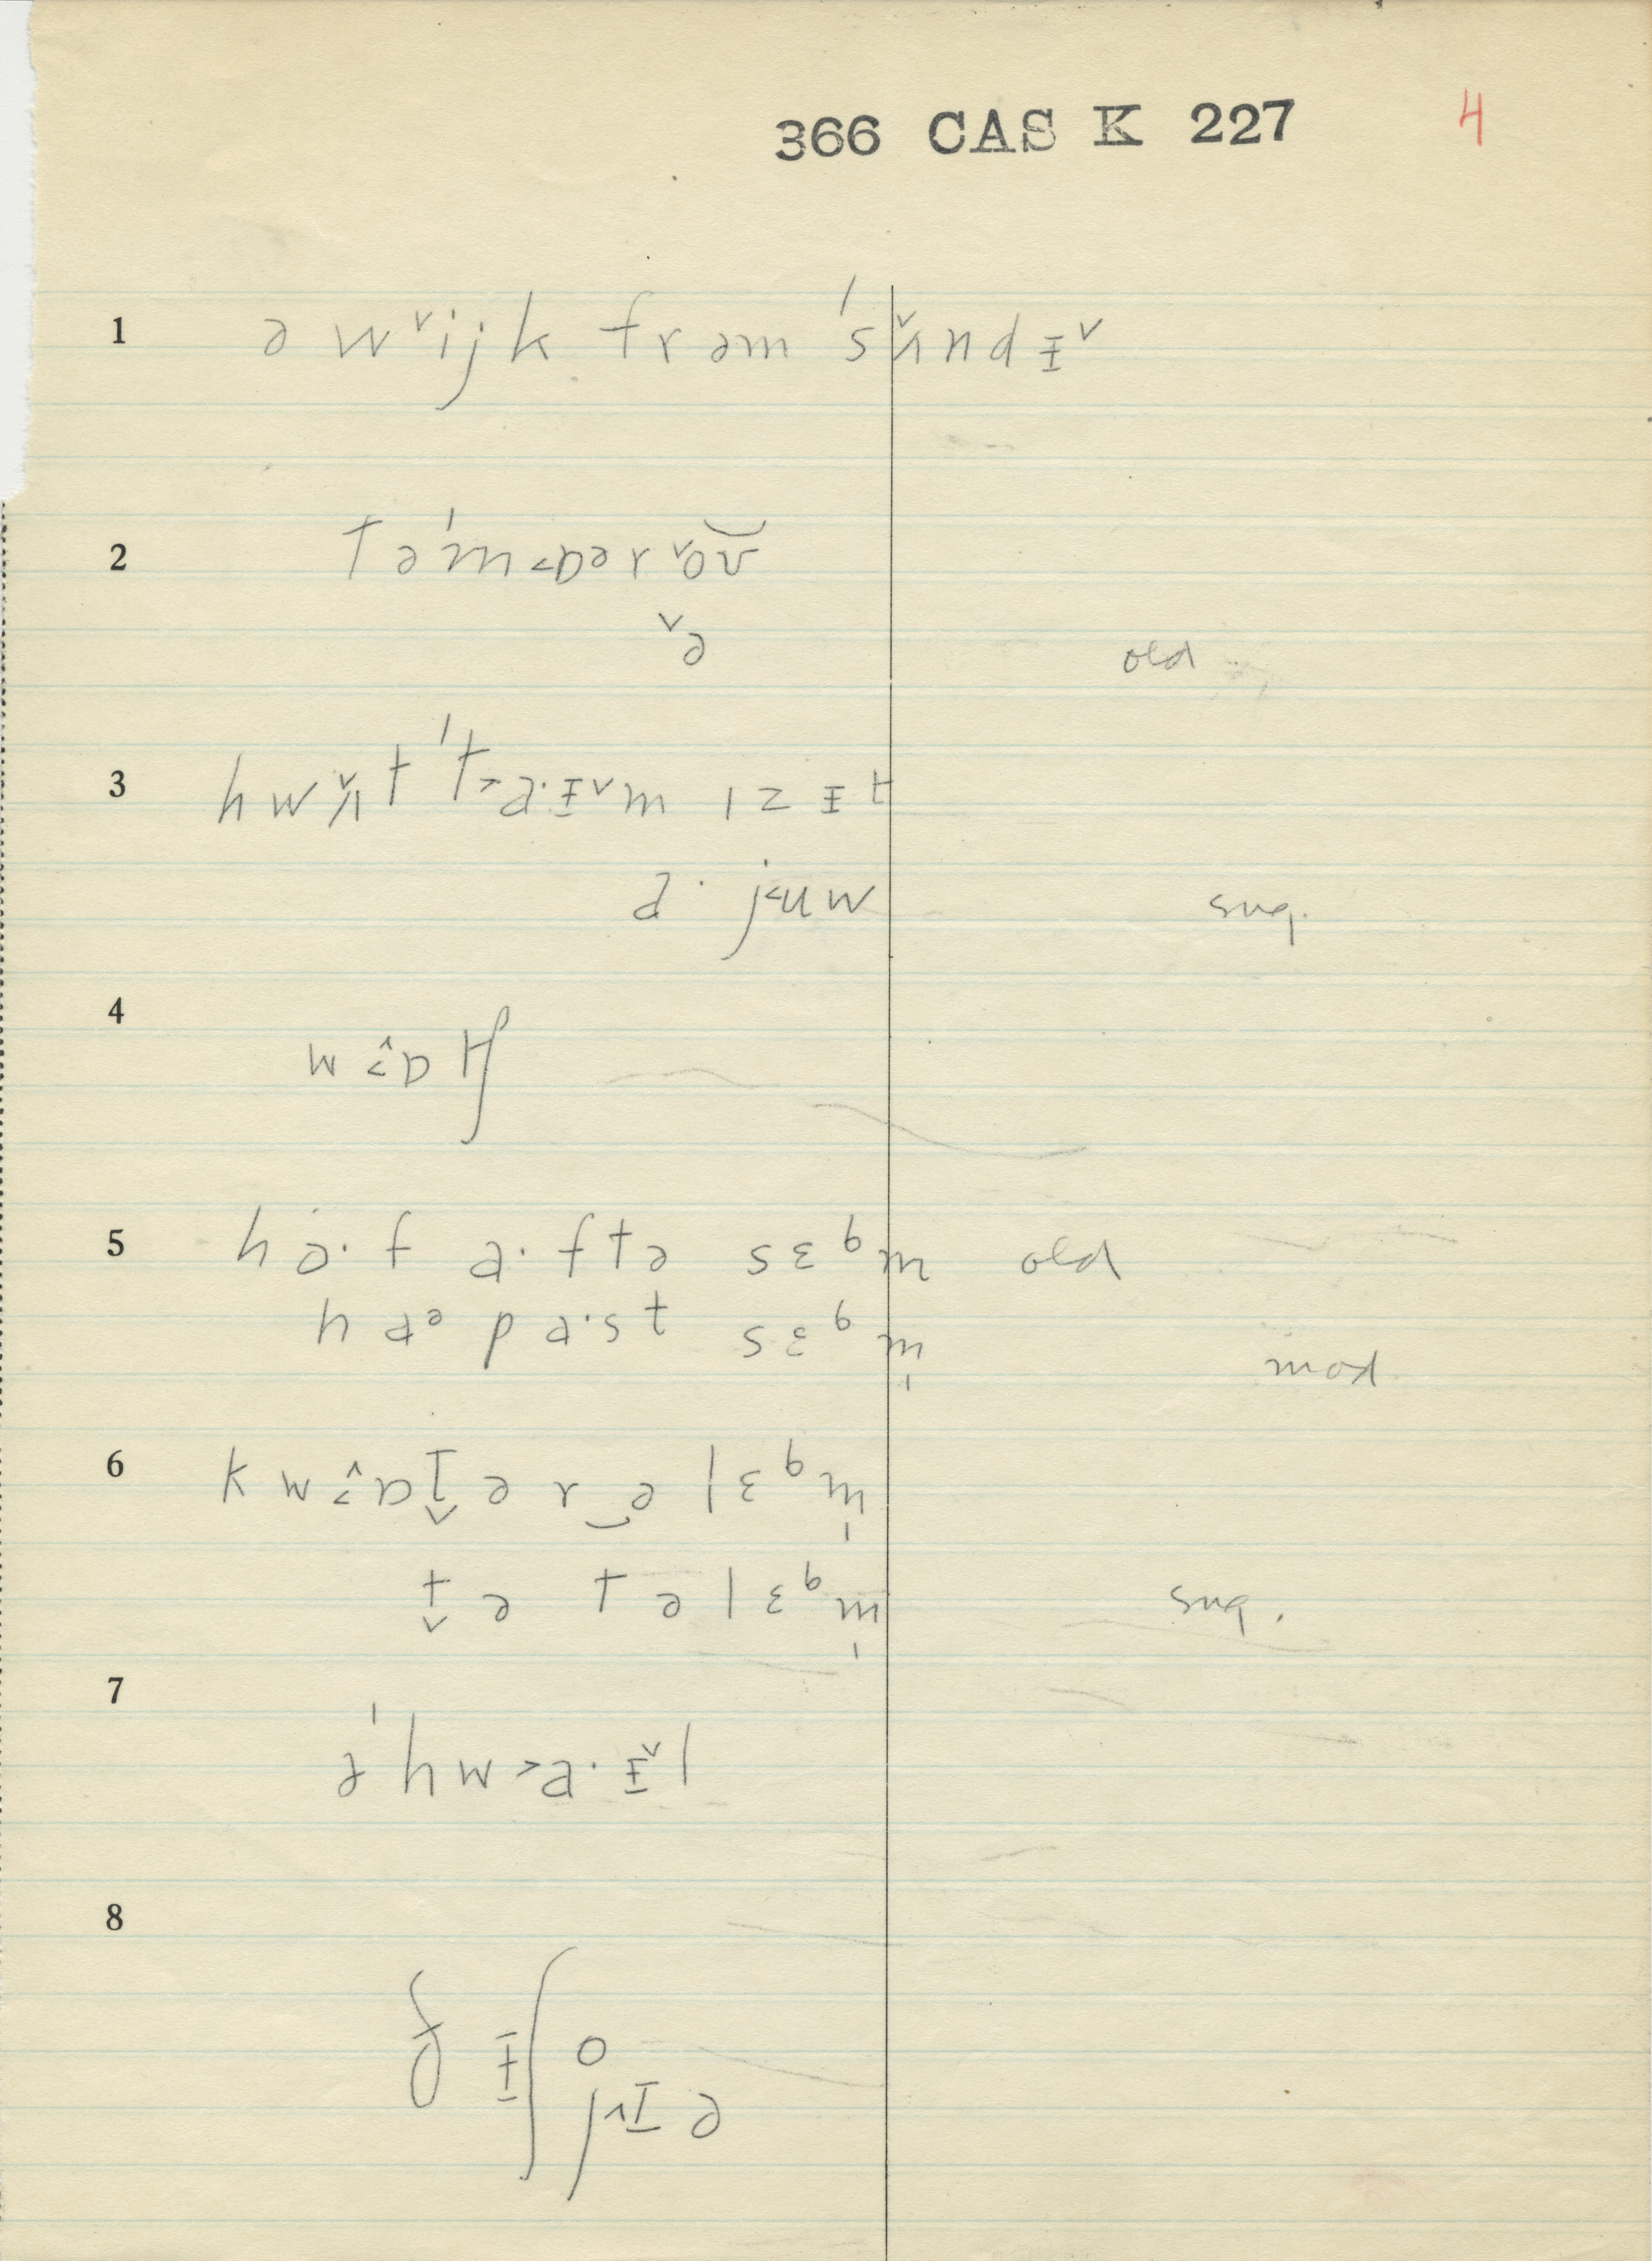 366 CAS K 227 4
1 ə w˅ijk frəm ˈsʌ̌ndᵻ˅
2 təˈm˂ɒər˅oʊ̆
˅ə old
3 hwʌ̌t ˈt˃a·ᵻ˅m ɪz ᵻt
d· j˂uw sug.
4 w˂ɒ̂tʃ
5 ha·f a·ftə sɛᵇm old
haᵊ pa·st sɛᵇm̩ mod
6 kw˂ɒ̂t̬ə r‿ə lɛᵇm̩
t̬ə tə lɛᵇm̩ sug.
7 əˈhw˃a·ᵻ˅l
8 ðᵻʃ o
j˄ɪə